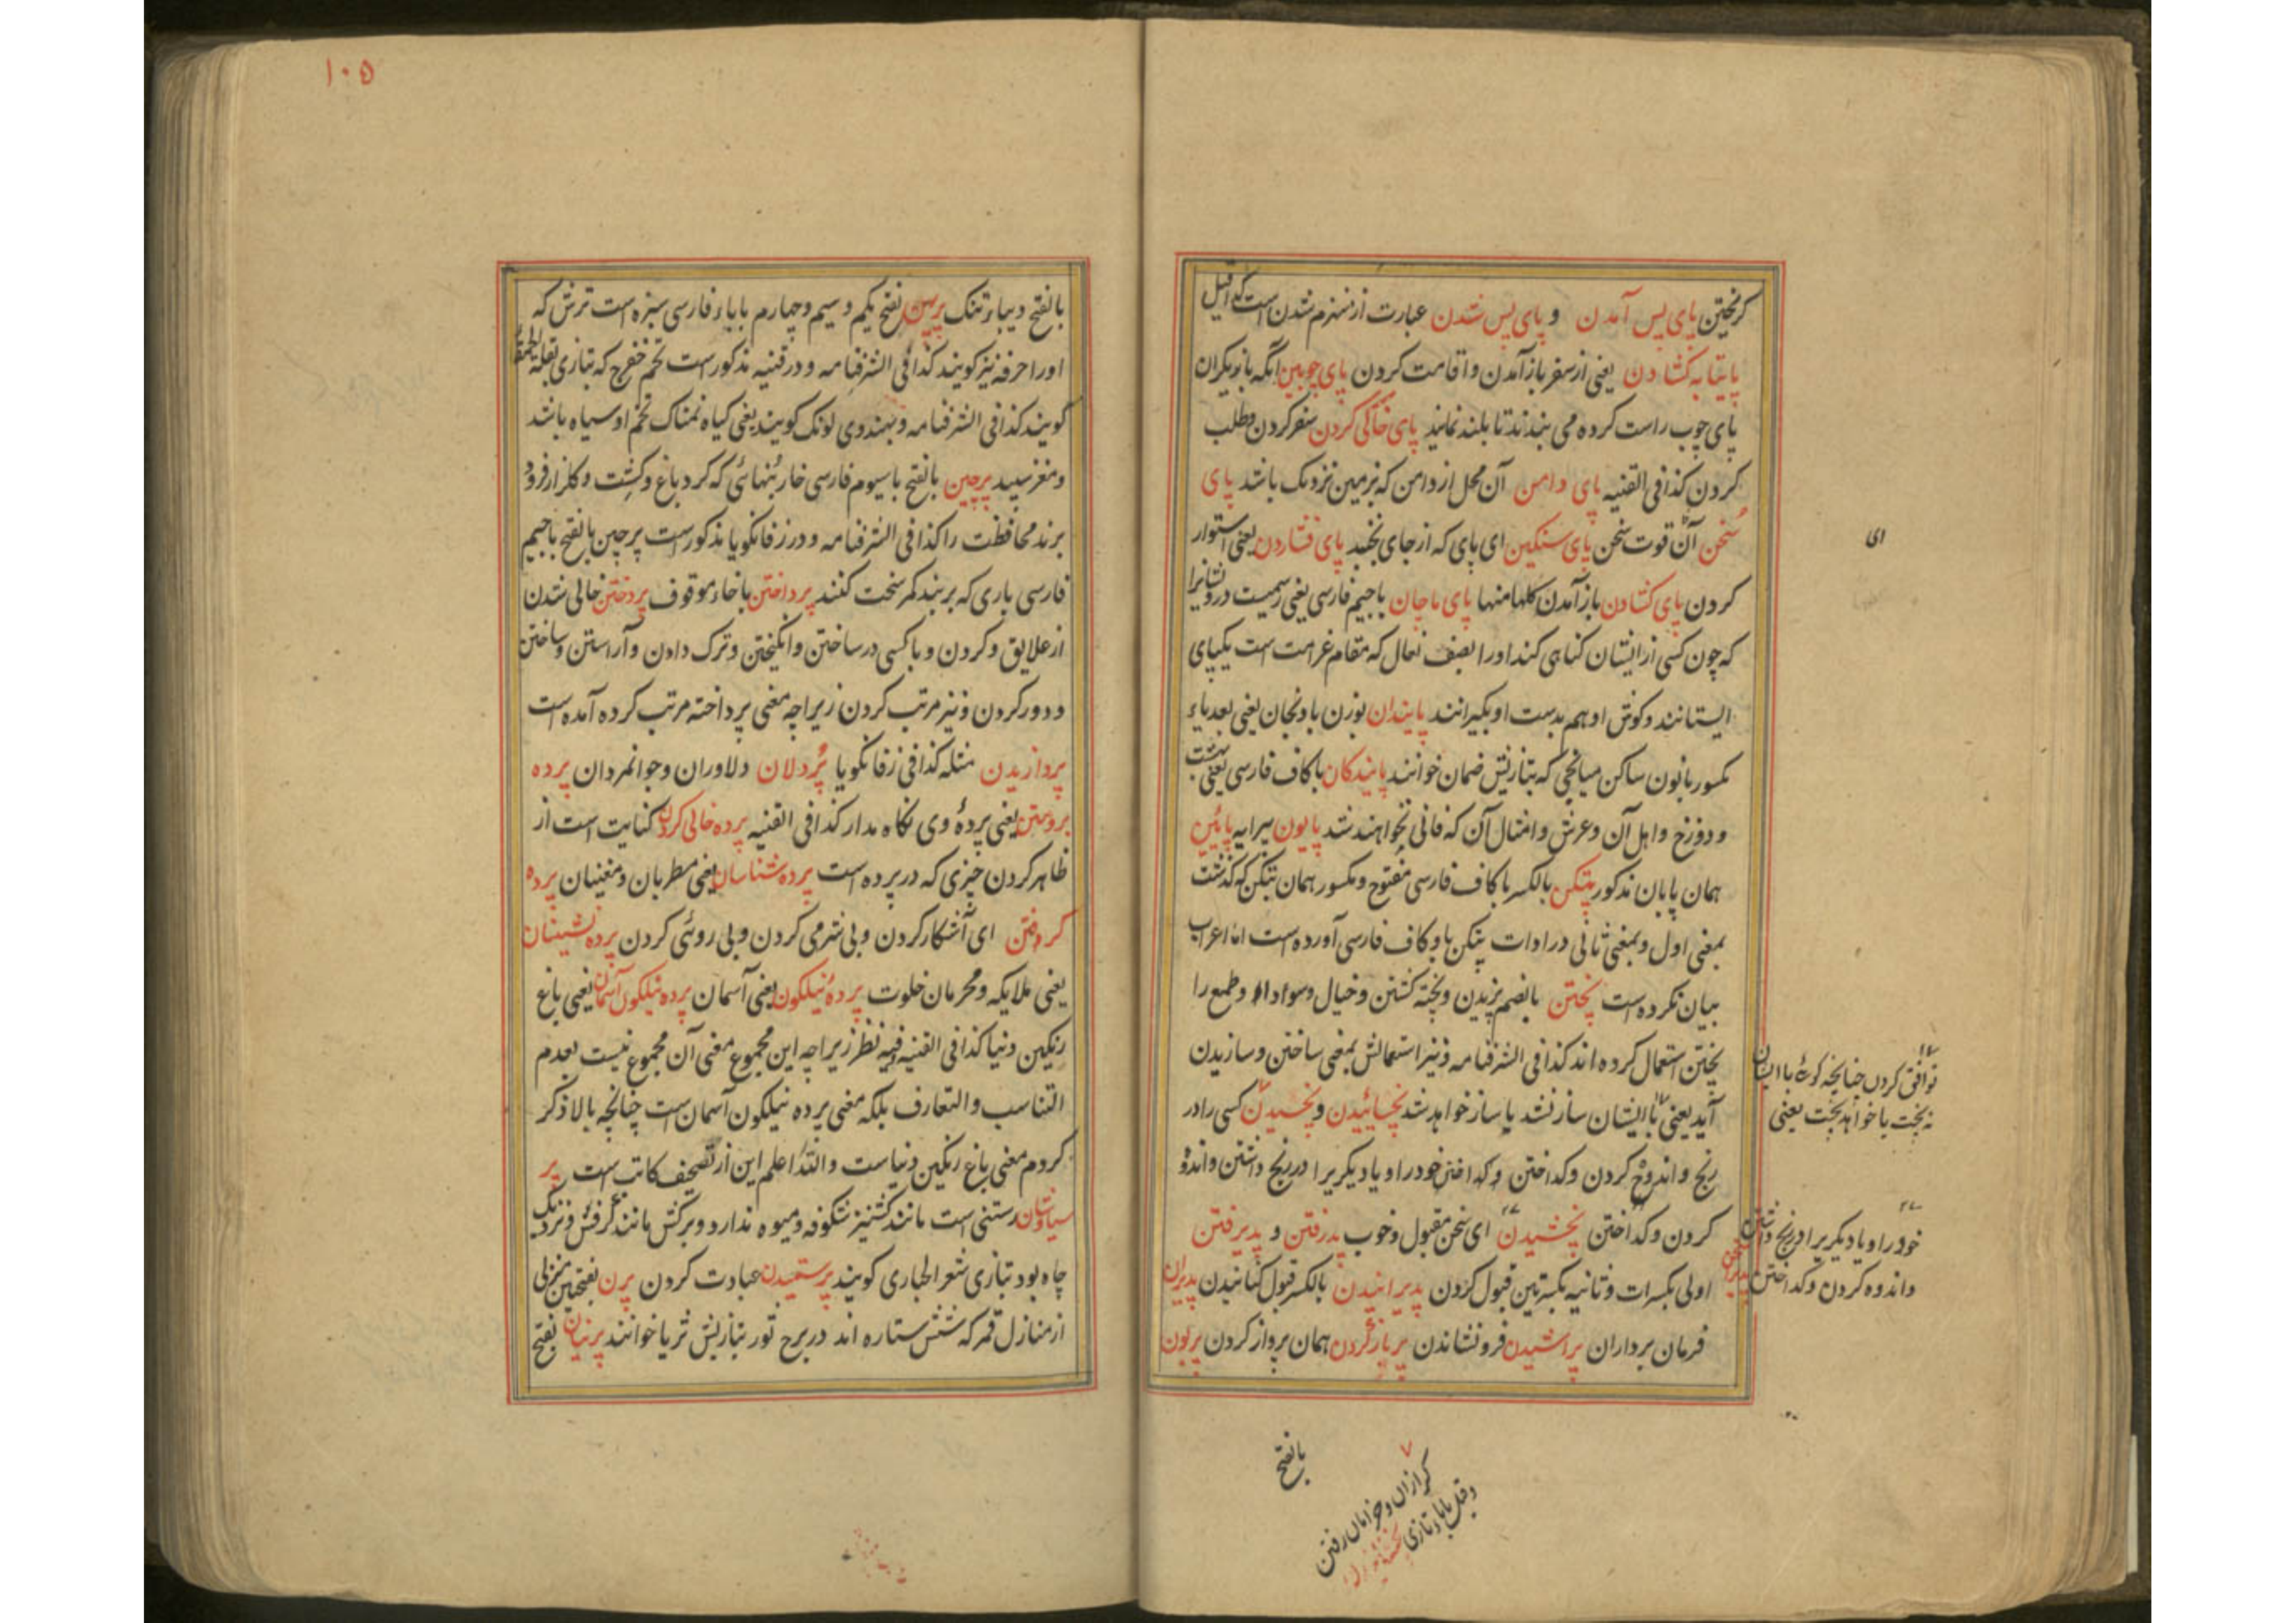 کریختن پای پس آمدن و پای پس شدن عبارت از منهزم شدن است کذا قیل
پایتابه کشادن یعنی از سفر باز آمدن و اقامت کردن پای چوبین آنکه بازیکران
پای چوب راست کرده می بندند تا بلند نمایند پای خاکی کردن سفر کردن و طلب
کردن کذا فی القنیه پای دامن آن محل از دامن که بزمین نزدیک باشد پای
سخن آن قوت سخن پای سنکین ای پای که از جای نجنبد پای فشاردن یعنی استوار
کردن پای کشادن باز آمدن پای ماچان باجیم فارسی یعنی رسمیست درویشانرا
که چون کسی از ایشان کناهی کند او را بصف نعال که مقام غرامت است یکپای
ایستانند و کوش او هم بدست او بکیرانند پایندان بوزن بادنجان یعنی بعد یاء
مکسور بانون ساکن میانجی که بتازیش ضمان خوانند پایندکان باکاف فارسی یعنی بهشت
و دوزخ و اهل آن و عرش و امثال آن که فانی نخواهند شد پایون پیرایه پائین
همان پایان مذکور پتکن بالکسر باکاف فارسی مفتوح و مکسور همان بتکن که گذشت
بمعنی اول و بمعنی ثانی در ادات پتکن با و کاف فارسی آورده است اما اعراب
بیان نکرده است پختن بالضم پزیدن و پخته کشتن و خیال و سودا و طمع را
پختن استعمال کرده اند کذا فی الشرفنامه و نیز استعمالش بمعنی ساختن و سازیدن
آید یعنی با ایشان ساز نشد یا ساز خواهد شد پخسائیدن و پخسیدن کسی را در
رنج و اندوه کردن و کداختن و کداختن خود را و یا دیکریرا در رنج داشتن و اندوه
کردن و کداختن پخشیدن ای سخن مقبول و خوب پذرفتن و پذیرفتن
اولی بکسرات و ثانیه بکسرتین قبول کردن پذیرانیدن بالکسر قبول کنانیدن پذیران
فرمان برداران پراشیدن فرو نشاندن پر باز کردن همان پرواز کردن پرلون
ای
توافق کردن چنانچه کوئ با ایشان
نه پخت یا خواهد پخت یعنی
خود را و یا دیکریرا در رنج داشتن
و اندوه کردن و کداختن
بالفتح
کرازان و خرامان رفتن
و قیل باباء تازی
۱۰۵
بالفتح دیباء تنک پرپین بفتح یکم و سیم و چهارم باباء فارسی سبزه است ترش که
او را خرفه نیز کویند کذا فی الشرفنامه و در قنیه مذکور است تخم خفرج که بتازی بقلة الحمقا
کویند کذا فی الشرفنامه و بهندوی لونک کویند یعنی کیاه نمناک تخم او سیاه باشد
و مغز سپید پرچین بالفتح باسیوم فارسی خار بنهائی که کرد باغ و کشت و کلزار فرو
برند محافظت را کذا فی الشرفنامه و در زفانکویا مذکور است پرچین بالفتح باجیم
فارسی باری که بر بندند کمر سخت کنند پرداختن باخاء موقوف پردختن خالی شدن
از علایق و کردن و با کسی در ساختن و انکیختن و ترک دادن و آراستن و ساختن
و دور کردن و نیز مرتب کردن زیراچه معنی پرداخته مرتب کرده آمده است
پردازیدن مثله کذا فی زفانکویا پُردلان دلاوران و جوانمردان پرده
برو متن یعنی پردۀ وی نکاه مدار کذا فی القنیه پرده خالی کردن کنایت است از
ظاهر کردن چیزی که در پرده است پرده شناسان یعنی مطربان و مغنیان پرده
کرفتن ای آشکار کردن و بی شرمی کردن و بی روئی کردن پرده نشینان
یعنی ملایکه و محرمان خلوت پردۀ نیلکون یعنی آسمان پرده نیلکون آسمان یعنی باغ
رنکین دنیا کذا فی القنیه فیه نظر زیراچه این مجموع معنی آن مجموع نیست بعدم
التناسب والتعارف بلکه معنی پرده نیلکون آسمانست چنانچه بالا ذکر
کردم معنی باغ رنکین دنیاست والله اعلم این از تصحف کاتب است پر
سیاوشان رستنی است مانند کشنیز شکوفه و میوه ندارد و برکش مانند کرفش و نزدیک
چاه بود بتازی شعر الجباری کویند پرستیدن عبادت کردن پرن بفتحین منزلی
از منازل قمر که شش ستاره اند در برج ثور بتازیش ثریا خوانند پرنیان بفتح